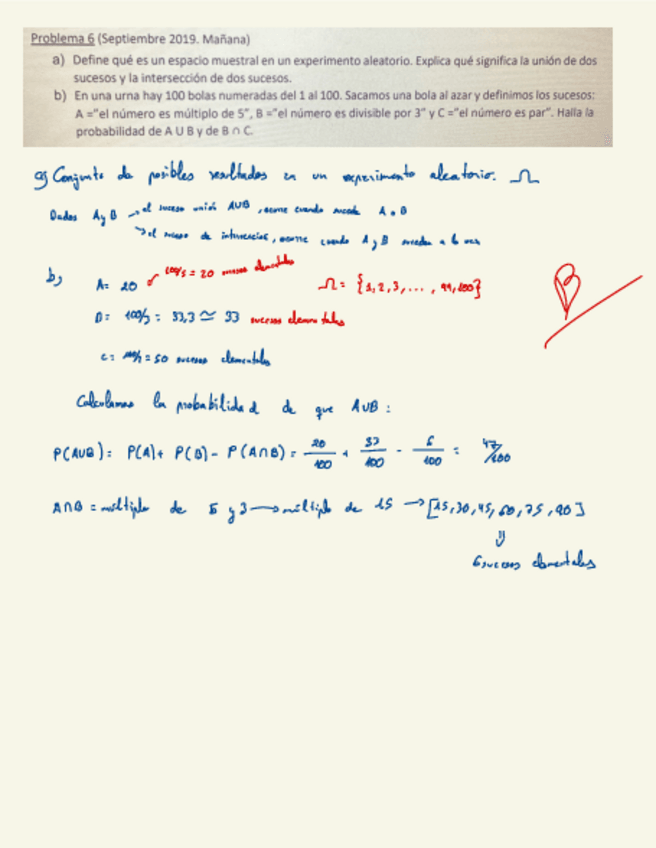 Problema 6 (Septiembre 2019. Mañana)
a) Define qué es un espacio muestral en un experimento aleatorio. Explica qué significa la unión de dos
sucesos y la intersección de dos sucesos.
b) En una urna hay 100 bolas numeradas del 1 al 100. Sacamos una bola al azar y definimos los sucesos:
A ="el número es múltiplo de 5", B ="el número es divisible por 3" y C ="el número es par". Halla la
probabilidad de A U B y de B ∩ C.
a) Conjunto de posibles resultados en un experimento aleatorio. Ω
Dados A y B → el suceso unión AUB, ocurre cuando sucede A o B
→ el suceso de intersección, ocurre cuando A y B suceden a la vez
b)
A= 20 100/5 = 20 sucesos elementales
Ω= {1,2,3,..., 99,100}
B= 100/3 = 33,3 ≃ 33 sucesos elementales
C= 100/2 = 50 sucesos elementales
Calculamos la probabilidad de que AUB:
P(AUB)= P(A)+ P(B)- P(A∩B)= 20/100 + 33/100 - 6/100 = 47/100
A∩B = múltiplo de 5 y 3 → múltiplo de 15 → [15,30,45,60,75,90]
⇓
6 sucesos elementales